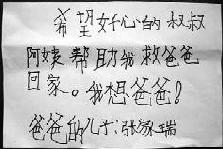 希望好心的叔叔
阿姨帮助我救爸爸
回家。我想爸爸!
爸爸的儿子:张家瑞